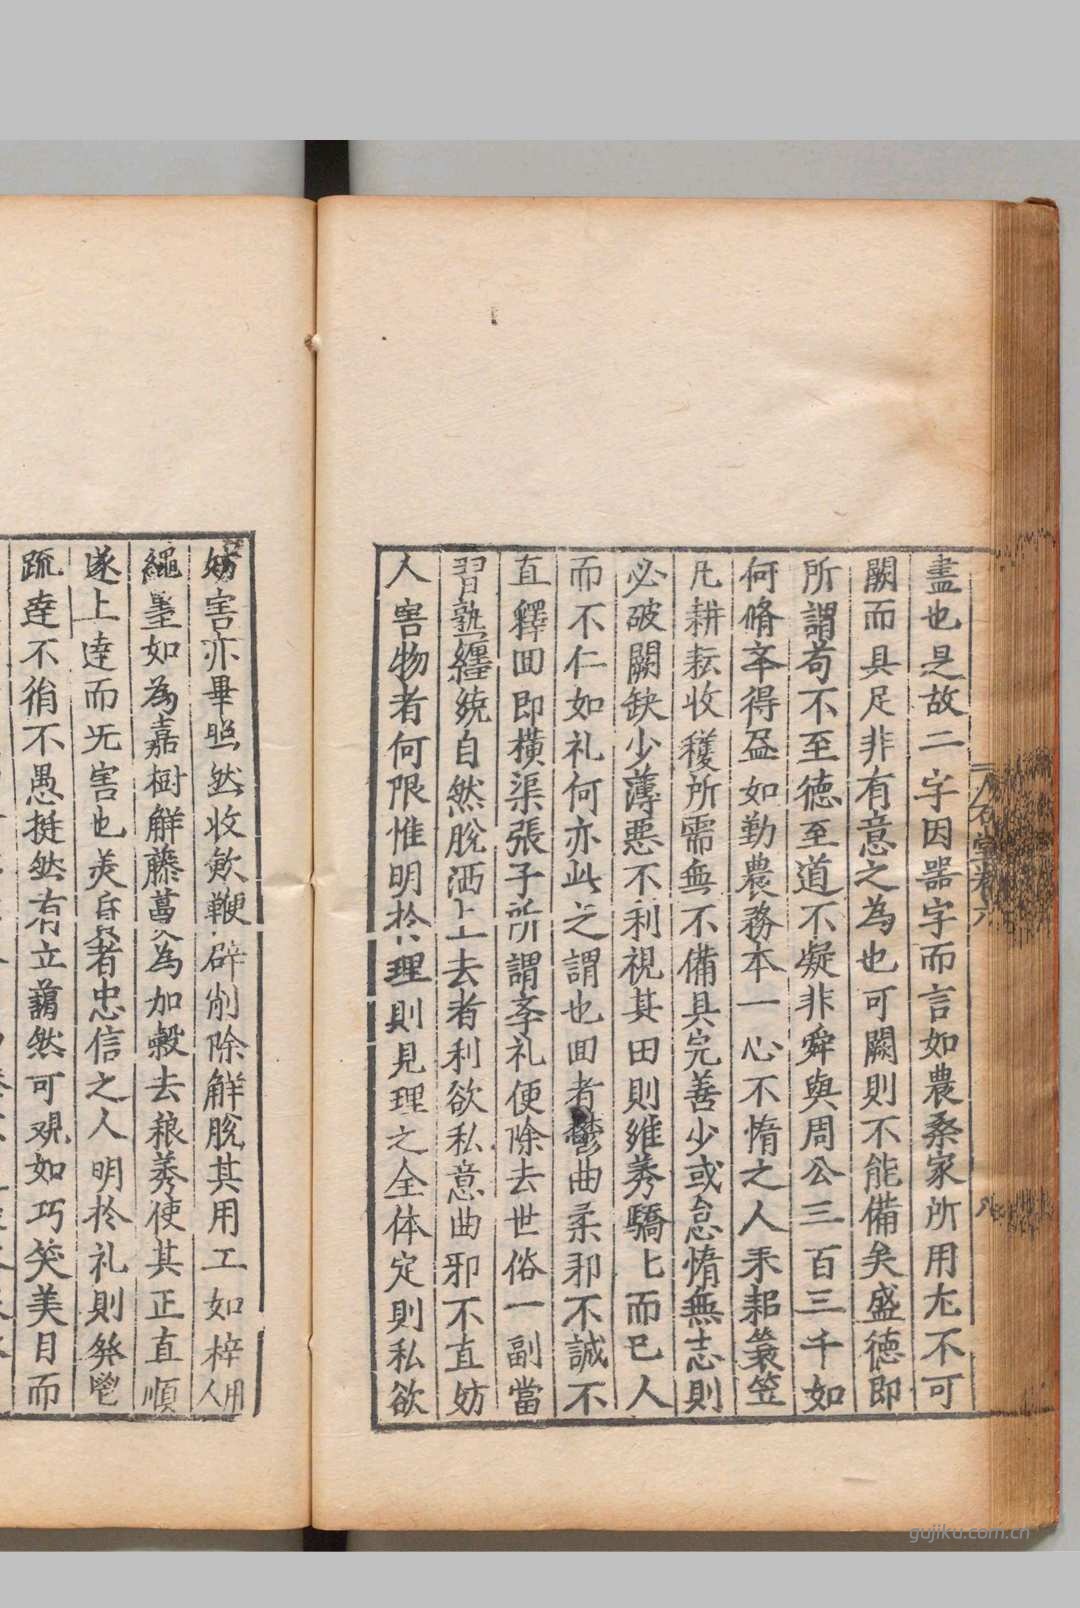 盡也是故二字因器字而言如農桑家所用尢不可
闕而具足非有意之為也可闕則不能備矣盛德即
所謂苟不至德至道不凝非舜與周公三百三千如
何脩夲得盈如勤農務本一心不惰之人耒耜簑笠
凡耕耘收穫所需無不備具完善少或怠惰無志則
必破闕缺少薄惡不利視其田則維莠驕匕而已人
而不仁如礼何亦此之謂也囬者欝曲柔邪不誠不
直釋囬即橫渠張子所謂斈礼便除去世俗一副當
習熟纏繞自然脫洒上去者利欲私意曲邪不直妨
人害物者何限惟明於理則見理之全体定則私欲
妨害亦畢照然收斂鞭辟削除解脫其用工如梓人用
繩墨如為嘉樹解藤葛又為加穀去稂莠使其正直順
遂上達而无害也美質者忠信之人明於礼則發鬯
疏達不徇不愚挺然有立藹然可观如巧笑美目而
石堂卷六
八
gujiku.com.cn